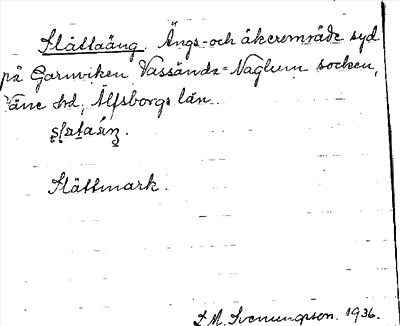 Slättaäng. Ängs- och åkerområde syd
på Garnviken Vassända-Naglum socken,
Väne hd, Älfsborgs län.
Slättmark.
1936.